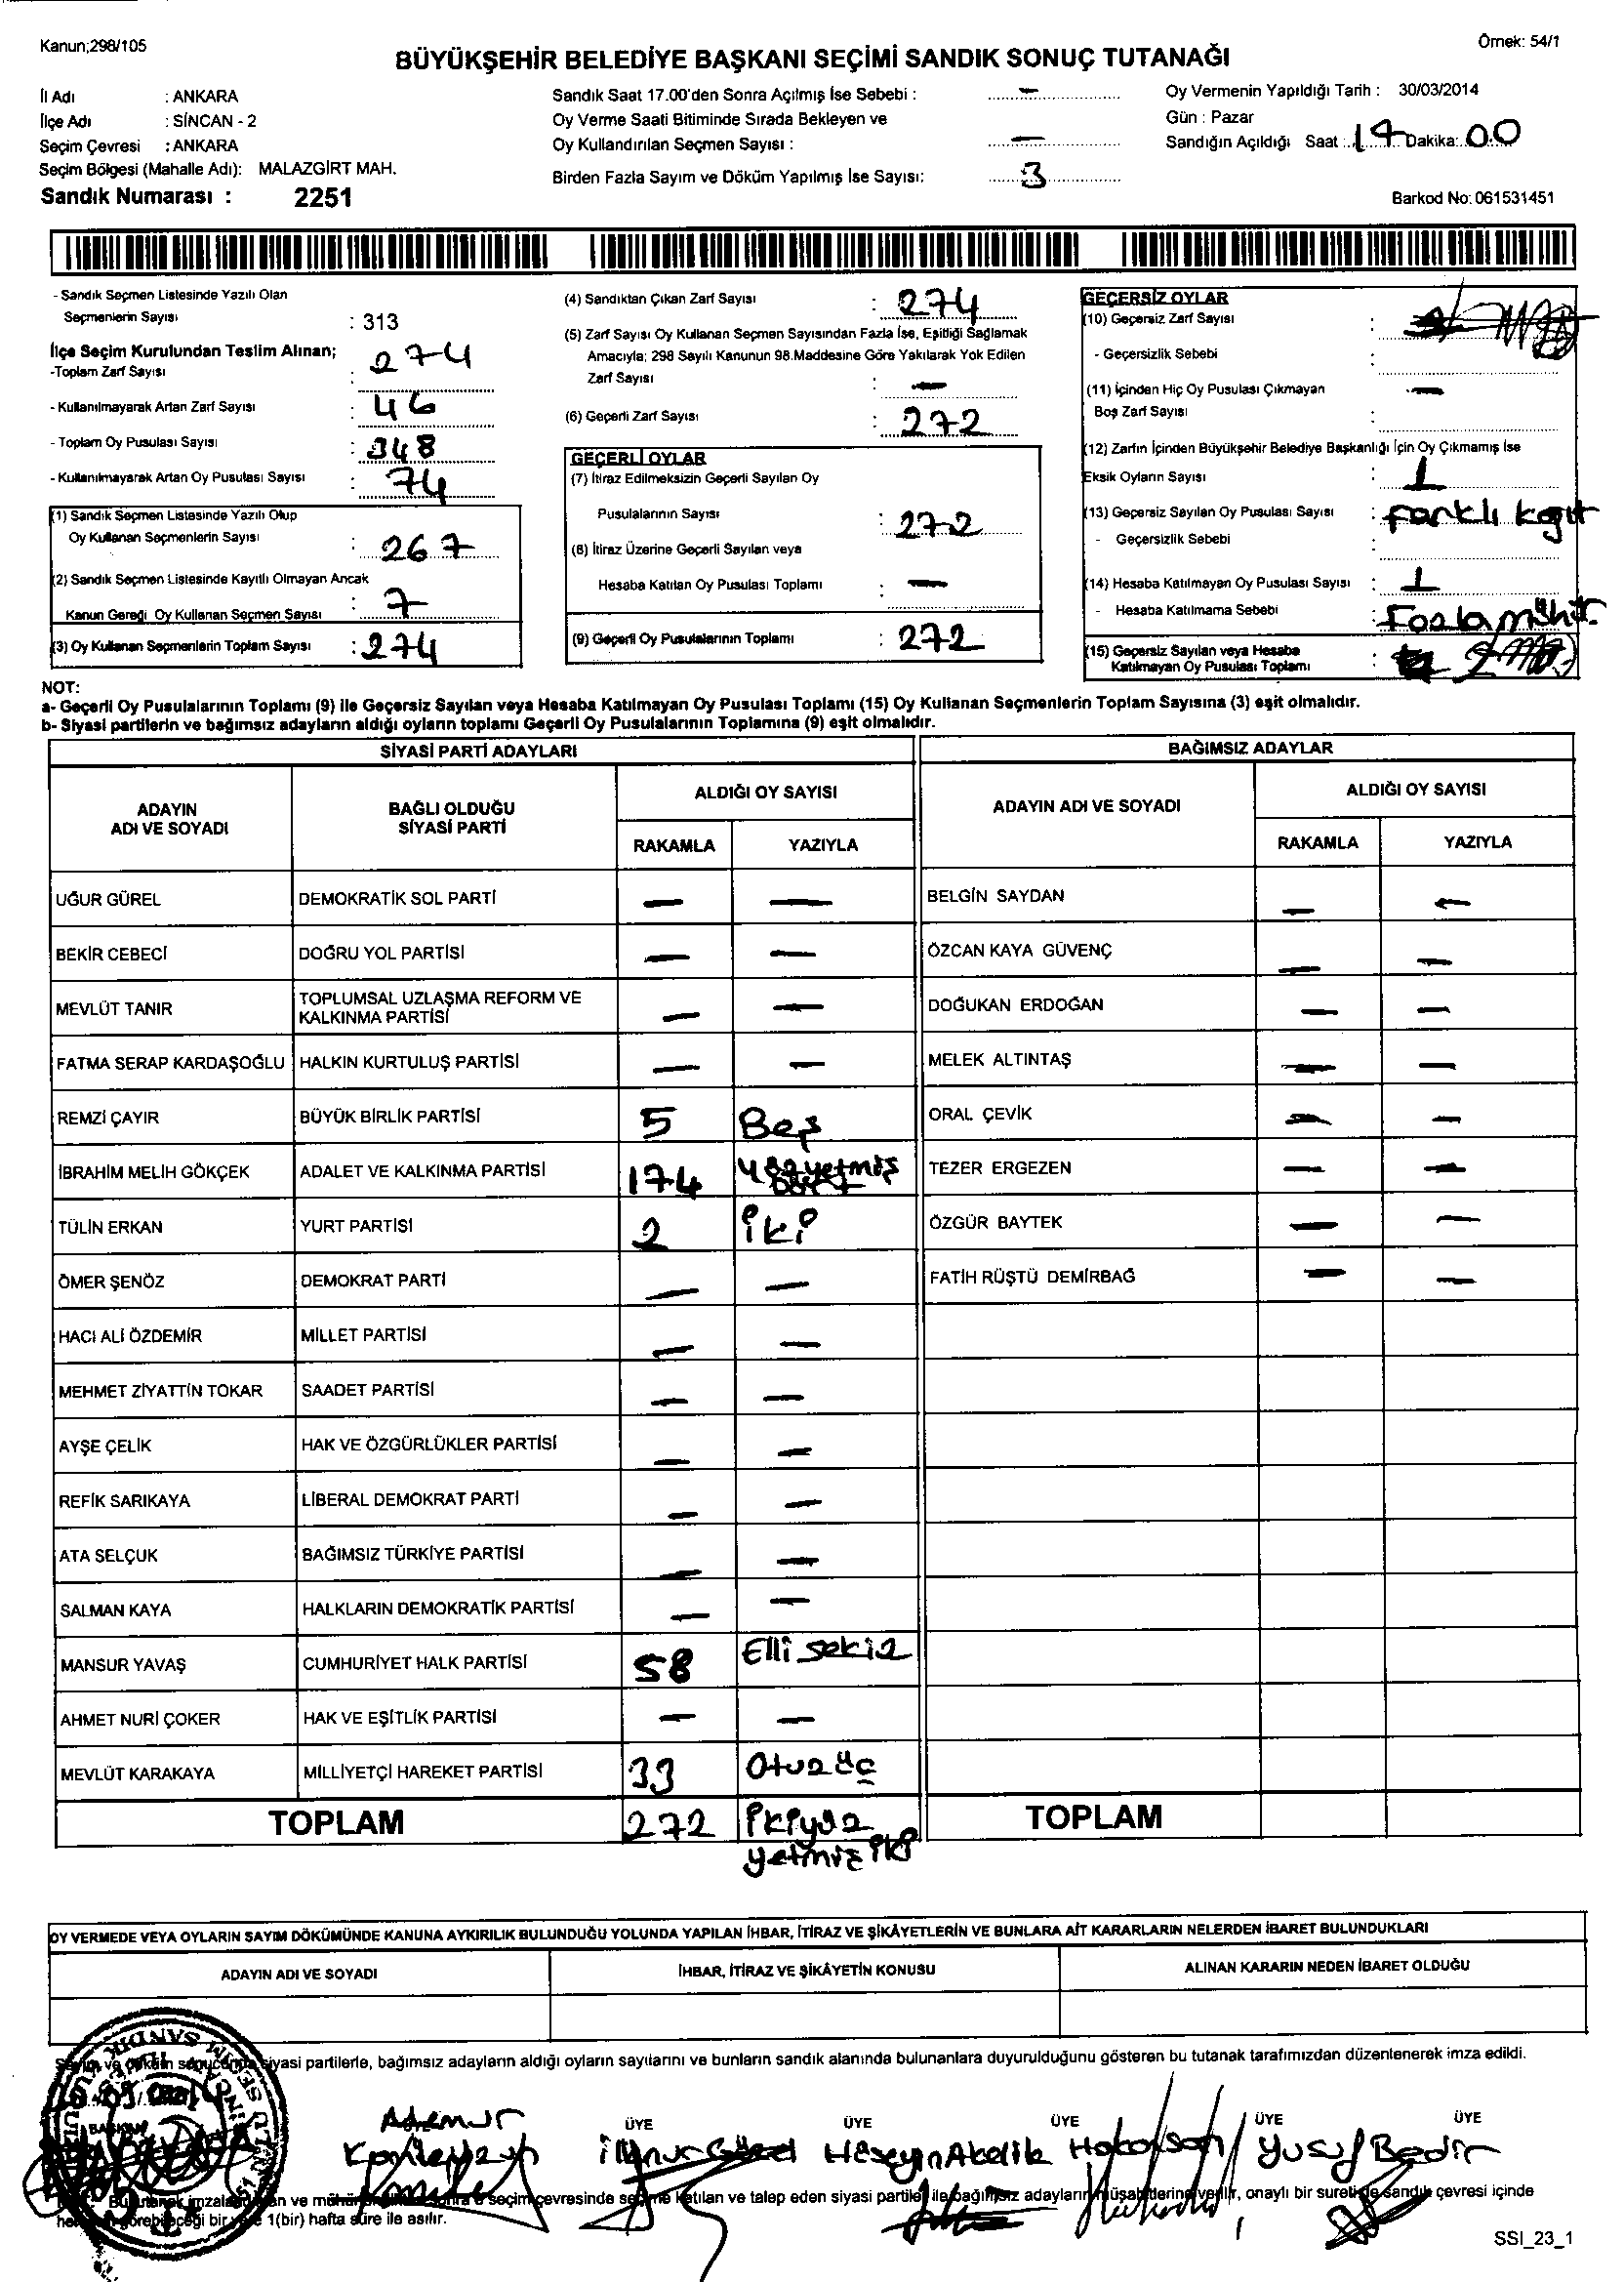 Kanun;298/105
Örnek: 54/1
BÜYÜKŞEHİR BELEDİYE BAŞKANI SEÇİMİ SANDIK SONUÇ TUTANAĞI
İl Adı : ANKARA
İlçe Adı : SİNCAN - 2
Seçim Çevresi : ANKARA
Seçim Bölgesi (Mahalle Adı): MALAZGİRT MAH.
Sandık Numarası : 2251
Sandık Saat 17.00'den Sonra Açılmış İse Sebebi : –
Oy Verme Saati Bitiminde Sırada Bekleyen ve
Oy Kullandırılan Seçmen Sayısı : –
Birden Fazla Sayım ve Döküm Yapılmış İse Sayısı: 3
Oy Vermenin Yapıldığı Tarih : 30/03/2014
Gün : Pazar
Sandığın Açıldığı Saat : Dakika: 00
Barkod No: 061531451
- Sandık Seçmen Listesinde Yazılı Olan
Seçmenlerin Sayısı : 313
İlçe Seçim Kurulundan Teslim Alınan;
-Toplam Zarf Sayısı : 274
- Kullanılmayarak Artan Zarf Sayısı : 46
- Toplam Oy Pusulası Sayısı : 348
- Kullanılmayarak Artan Oy Pusulası Sayısı : 74
(1) Sandık Seçmen Listesinde Yazılı Olup
Oy Kullanan Seçmenlerin Sayısı : 267
(2) Sandık Seçmen Listesinde Kayıtlı Olmayan Ancak
Kanun Gereği Oy Kullanan Seçmen Sayısı : 7
(3) Oy Kullanan Seçmenlerin Toplam Sayısı : 274
(4) Sandıktan Çıkan Zarf Sayısı : 274
(5) Zarf Sayısı Oy Kullanan Seçmen Sayısından Fazla İse, Eşitliği Sağlamak
Amacıyla; 298 Sayılı Kanunun 98.Maddesine Göre Yakılarak Yok Edilen
Zarf Sayısı : –
(6) Geçerli Zarf Sayısı : 272
GEÇERLİ OYLAR
(7) İtiraz Edilmeksizin Geçerli Sayılan Oy
Pusulalarının Sayısı : 272
(8) İtiraz Üzerine Geçerli Sayılan veya
Hesaba Katılan Oy Pusulası Toplamı : –
(9) Geçerli Oy Pusulalarının Toplamı : 272
GEÇERSİZ OYLAR
(10) Geçersiz Zarf Sayısı :
- Geçersizlik Sebebi :
(11) İçinden Hiç Oy Pusulası Çıkmayan –
Boş Zarf Sayısı :
(12) Zarfın İçinden Büyükşehir Belediye Başkanlığı İçin Oy Çıkmamış İse
Eksik Oyların Sayısı : 1
(13) Geçersiz Sayılan Oy Pusulası Sayısı : farklı kağıt
- Geçersizlik Sebebi :
(14) Hesaba Katılmayan Oy Pusulası Sayısı : 1
- Hesaba Katılmama Sebebi : Fazla mühür.
(15) Geçersiz Sayılan veya Hesaba
Katılmayan Oy Pusulası Toplamı : 2
NOT:
a- Geçerli Oy Pusulalarının Toplamı (9) ile Geçersiz Sayılan veya Hesaba Katılmayan Oy Pusulası Toplamı (15) Oy Kullanan Seçmenlerin Toplam Sayısına (3) eşit olmalıdır.
b- Siyasi partilerin ve bağımsız adayların aldığı oyların toplamı Geçerli Oy Pusulalarının Toplamına (9) eşit olmalıdır.
SİYASİ PARTİ ADAYLARI
ADAYIN ADI VE SOYADI BAĞLI OLDUĞU SİYASİ PARTİ ALDIĞI OY SAYISI
RAKAMLA YAZIYLA
UĞUR GÜREL DEMOKRATİK SOL PARTİ – –
BEKİR CEBECİ DOĞRU YOL PARTİSİ – –
MEVLÜT TANIR TOPLUMSAL UZLAŞMA REFORM VE KALKINMA PARTİSİ – –
FATMA SERAP KARDAŞOĞLU HALKIN KURTULUŞ PARTİSİ – –
REMZİ ÇAYIR BÜYÜK BİRLİK PARTİSİ 5 Beş
İBRAHİM MELİH GÖKÇEK ADALET VE KALKINMA PARTİSİ 174 yüzyetmiş Dört
TÜLİN ERKAN YURT PARTİSİ 2 iki
ÖMER ŞENÖZ DEMOKRAT PARTİ – –
HACI ALİ ÖZDEMİR MİLLET PARTİSİ – –
MEHMET ZİYATTİN TOKAR SAADET PARTİSİ – –
AYŞE ÇELİK HAK VE ÖZGÜRLÜKLER PARTİSİ – –
REFİK SARIKAYA LİBERAL DEMOKRAT PARTİ – –
ATA SELÇUK BAĞIMSIZ TÜRKİYE PARTİSİ – –
SALMAN KAYA HALKLARIN DEMOKRATİK PARTİSİ – –
MANSUR YAVAŞ CUMHURİYET HALK PARTİSİ 58 Elli sekiz
AHMET NURİ ÇOKER HAK VE EŞİTLİK PARTİSİ – –
MEVLÜT KARAKAYA MİLLİYETÇİ HAREKET PARTİSİ 33 Otuz üç
TOPLAM 272 ikiyüz
yetmiş iki
BAĞIMSIZ ADAYLAR
ADAYIN ADI VE SOYADI ALDIĞI OY SAYISI
RAKAMLA YAZIYLA
BELGİN SAYDAN – –
ÖZCAN KAYA GÜVENÇ – –
DOĞUKAN ERDOĞAN – –
MELEK ALTINTAŞ – –
ORAL ÇEVİK – –
TEZER ERGEZEN – –
ÖZGÜR BAYTEK – –
FATİH RÜŞTÜ DEMİRBAĞ – –
TOPLAM
OY VERMEDE VEYA OYLARIN SAYIM DÖKÜMÜNDE KANUNA AYKIRILIK BULUNDUĞU YOLUNDA YAPILAN İHBAR, İTİRAZ VE ŞİKÂYETLERİN VE BUNLARA AİT KARARLARIN NELERDEN İBARET BULUNDUKLARI
ADAYIN ADI VE SOYADI İHBAR, İTİRAZ VE ŞİKÂYETİN KONUSU ALINAN KARARIN NEDEN İBARET OLDUĞU
Sayım ve döküm sonucunda siyasi partilerle, bağımsız adayların aldığı oyların sayılarını ve bunların sandık alanında bulunanlara duyurulduğunu gösteren bu tutanak tarafımızdan düzenlenerek imza edildi.
BAŞKAN ÜYE ÜYE ÜYE ÜYE ÜYE
Hüseyin Yusuf Bedir
seçim çevresinde seçime katılan ve talep eden siyasi partiler ile bağımsız adayların müşahitlerine verilir, onaylı bir sureti de sandık çevresi içinde
1(bir) hafta süre ile asılır.
SSI_23_1